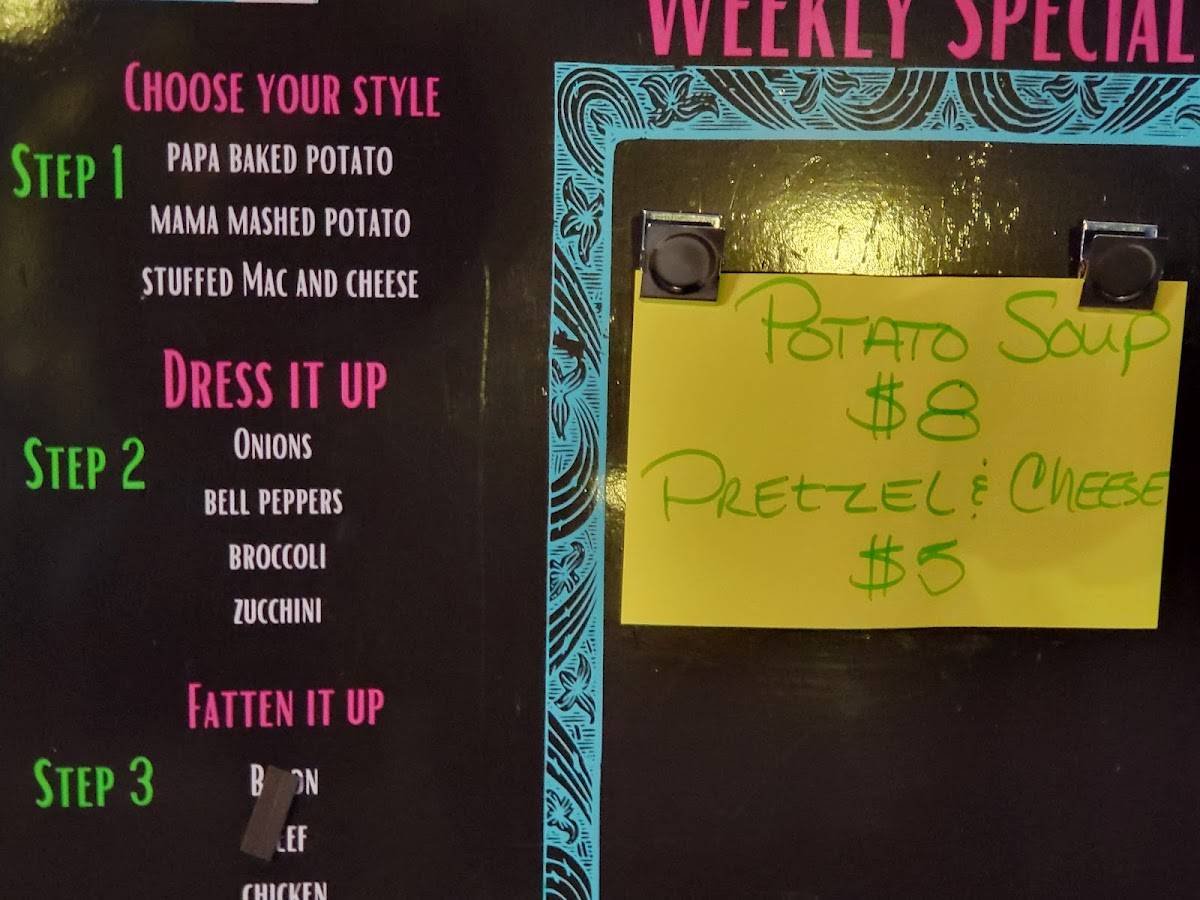 CHOOSE YOUR STYLE
STEP 1
PAPA BAKED POTATO
MAMA MASHED POTATO
STUFFED MAC AND CHEESE
DRESS IT UP
STEP 2
ONIONS
BELL PEPPERS
BROCCOLI
ZUCCHINI
FATTEN IT UP
STEP 3
CHICKEN
WEEKLY SPECIAL
POTATO SOUP
$8
PRETZEL & CHEESE
$5